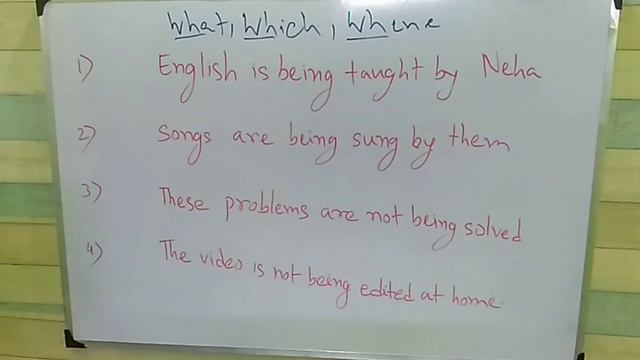 What, Which, Where
1) English is being taught by Neha
2) Songs are being sung by them
3) These problems are not being solved
4) The video is not being edited at home.